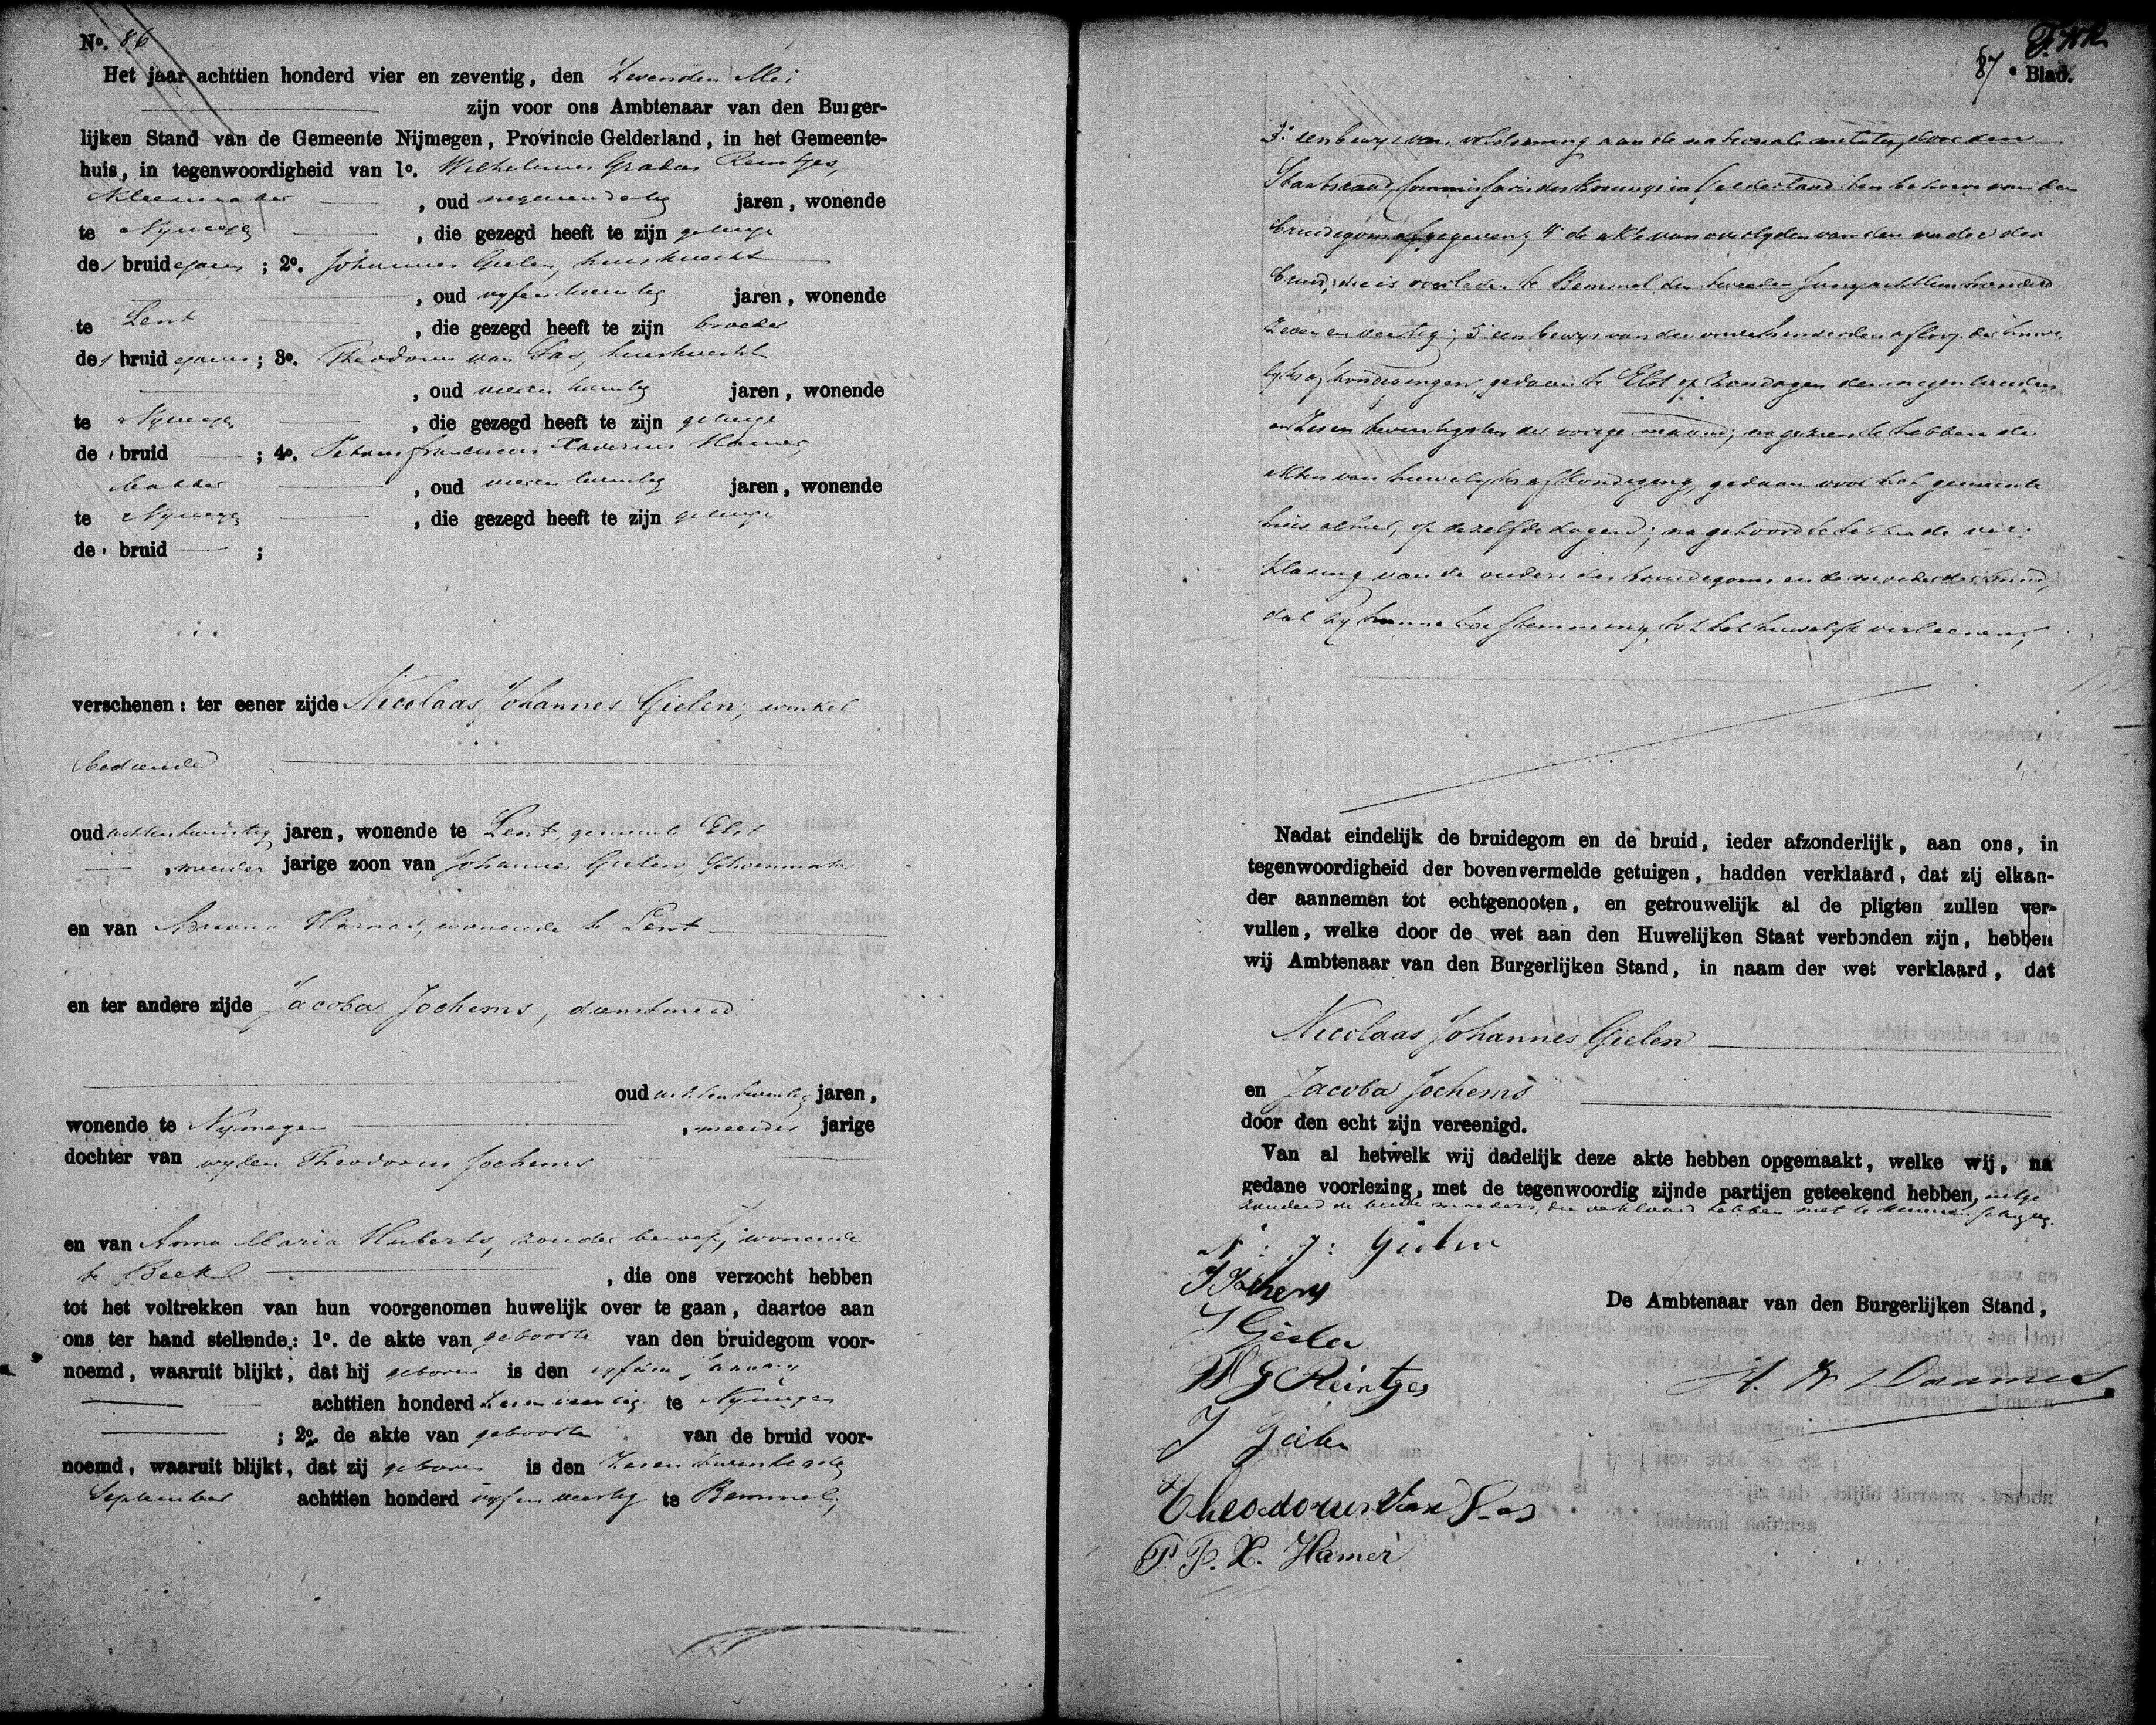 No. 86
Het jaar achttien honderd vier en zeventig, den Zevenden Mei
zijn voor ons Ambtenaar van den Burger-
lijken Stand van de Gemeente Nijmegen, Provincie Gelderland, in het Gemeente-
huis, in tegenwoordigheid van 1o. Wilhelmus Gradus Reintjes,
Kleermaker, oud negenendertig jaren, wonende
te Nymegen, die gezegd heeft te zijn getuige
des bruidegoms; 2o. Johannes Gielen, huisknecht
, oud vyfentwintig jaren, wonende
te Lent, die gezegd heeft te zijn broeder
des bruidegoms; 3o. Theodorus van Sas, huisknecht
, oud twintig jaren, wonende
te Nymegen, die gezegd heeft te zijn getuige
der bruid; 4o. Petrus Franciscus Xaverius Hamer,
bakker, oud twintig jaren, wonende
te Nymegen, die gezegd heeft te zijn getuige
der bruid;
verschenen: ter eener zijde Nicolaas Johannes Gielen, winkel
bediende
oud achtentwintig jaren, wonende te Lent, gemeente Elst
, meerder jarige zoon van Johannes Gielen, Schoenmaker
en van wonende te Lent
en ter andere zijde Jacoba Jochems, dienstmeid
oud achtentwintig jaren,
wonende te Nymegen, meerder jarige
dochter van wylen Theodorus Jochems
en van Anna Maria Huberts, zonder beroep, wonende
te Beek, die ons verzocht hebben
tot het voltrekken van hun voorgenomen huwelijk over te gaan, daartoe aan
ons ter hand stellende: 1o. de akte van geboorte van den bruidegom voor-
noemd, waaruit blijkt, dat hij geboren is den January
achttien honderd te Nymegen
; 2o. de akte van geboorte van de bruid voor-
noemd, waaruit blijkt, dat zij geboren is den Zevenentwintigsten
September achttien honderd vyfenveertig te Bemmel;
87e Blad.
3o. een bewys van voldoening aan de nationale militie, door den
Staatsraad, Commissaris des Konings in Gelderland ten behoeve van den
bruidegom afgegeven; 4o. de akte van overlyden van den vader der
bruid, die is overleden te Bemmel den tweeden Juny achttienhonderd
zevenenveertig; 5o. een bewys van den onverhinderden afloop der huwe-
lyksafkondigingen, gedaan te Elst op Zondagen den negentienden
en zesentwintigsten der vorige maand; nagezien te hebben de
akten van huwelyksafkondiging, gedaan voor het gemeente
huis alhier, op dezelfde dagen; na gehoord te hebben de ver-
klaring van de ouders des bruidegoms en de moeder der bruid,
dat zy hunne toestemming tot het huwelyk verleenen,
Nadat eindelijk de bruidegom en de bruid, ieder afzonderlijk, aan ons, in
tegenwoordigheid der bovenvermelde getuigen, hadden verklaard, dat zij elkan-
der aannemen tot echtgenooten, en getrouwelijk al de pligten zullen ver-
vullen, welke door de wet aan den Huwelijken Staat verbonden zijn, hebben
wij Ambtenaar van den Burgerlijken Stand, in naam der wet verklaard, dat
Nicolaas Johannes Gielen
en Jacoba Jochems
door den echt zijn vereenigd.
Van al hetwelk wij dadelijk deze akte hebben opgemaakt, welke wij, na
gedane voorlezing, met de tegenwoordig zijnde partijen geteekend hebben, uitge
zonderd de beide moeders, die verklaard hebben niet te kunnen
N: J: Gielen
J Jochems
J Gielen
W G Reintjes
J Gielen
Theodorus Van Sas
P. F. X. Hamer
De Ambtenaar van den Burgerlijken Stand,